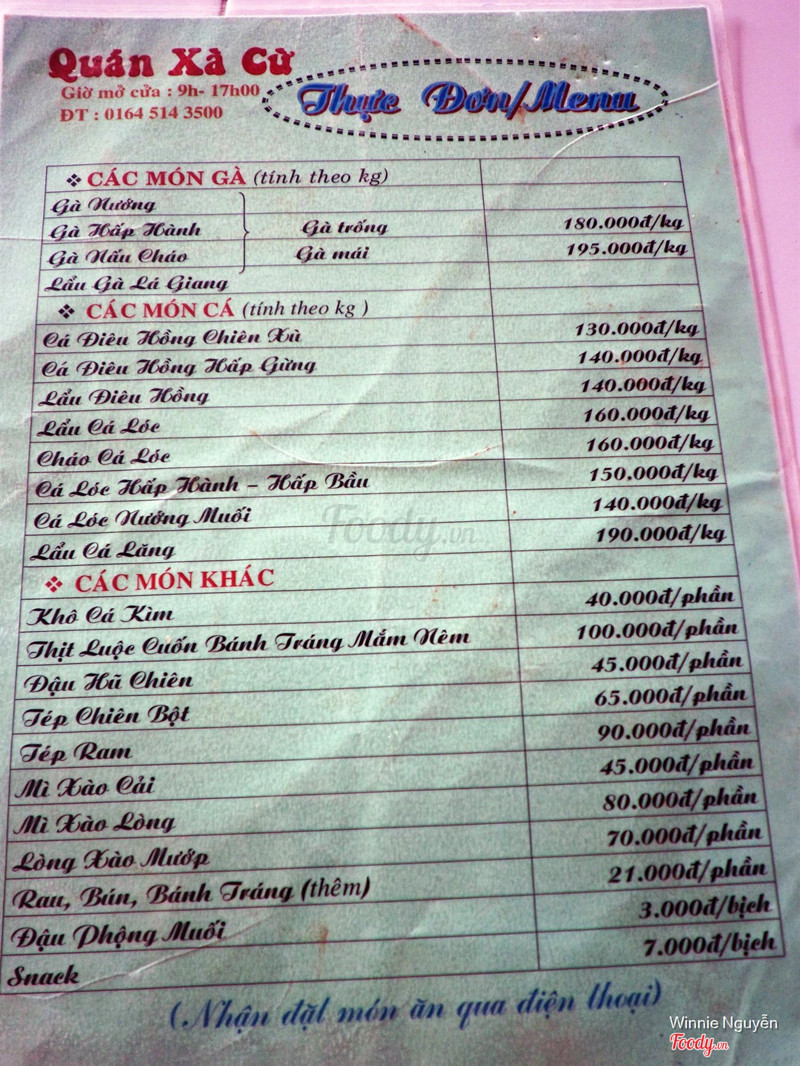 Quán Xà Cừ
Giờ mở cửa : 9h- 17h00
ĐT : 0164 514 3500
Thực Đơn/Menu
❖ CÁC MÓN GÀ (tính theo kg)
Gà Nướng
Gà Hấp Hành Gà trống 180.000đ/kg
Gà Nấu Cháo Gà mái 195.000đ/kg
Lẩu Gà Lá Giang
❖ CÁC MÓN CÁ (tính theo kg )
Cá Điêu Hồng Chiên Xù 130.000đ/kg
Cá Điêu Hồng Hấp Gừng 140.000đ/kg
Lẩu Điêu Hồng 140.000đ/kg
Lẩu Cá Lóc 160.000đ/kg
Cháo Cá Lóc 160.000đ/kg
Cá Lóc Hấp Hành – Hấp Bầu 150.000đ/kg
Cá Lóc Nướng Muối 140.000đ/kg
Lẩu Cá Lăng 190.000đ/kg
❖ CÁC MÓN KHÁC
Khô Cá Kìm 40.000đ/phần
Thịt Luộc Cuốn Bánh Tráng Mắm Nêm 100.000đ/phần
Đậu Hũ Chiên 45.000đ/phần
Tép Chiên Bột 65.000đ/phần
Tép Ram 90.000đ/phần
Mì Xào Cải 45.000đ/phần
Mì Xào Lòng 80.000đ/phần
Lòng Xào Mướp 70.000đ/phần
Rau, Bún, Bánh Tráng (thêm) 21.000đ/phần
Đậu Phộng Muối 3.000đ/bịch
Snack 7.000đ/bịch
(Nhận đặt món ăn qua điện thoại)
Foody.vn
Winnie Nguyễn
Foody.vn